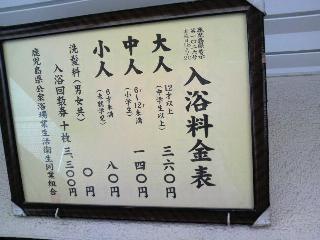 入浴料金表
大人
12才以上
(中学生以上)
三六〇円
中人
6才〜12才未満
(小学生)
一四〇円
小人
6才未満
(未就学児)
八〇円
洗髪料(男女共)
〇円
入浴回数券
十枚
三、三〇〇円
鹿児島県公衆浴場業生活衛生同業組合